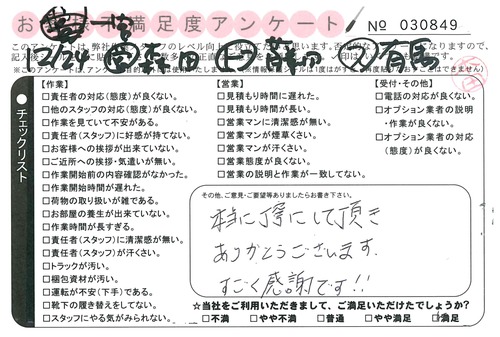 お客様不満足度アンケート
№ 030849
12/24 森田 藤 有馬
チェックリスト
【作業】
□責任者の対応(態度)が良くない。
□他のスタッフの対応(態度)が良くない。
□作業を見ていて不安がある。
□責任者(スタッフ)に好感が持てない。
□お客様への挨拶が出来ていない。
□ご近所への挨拶・気遣いが無い。
□作業開始前の内容確認がなかった。
□作業開始時間が遅れた。
□荷物の取り扱いが雑である。
□お部屋の養生が出来ていない。
□作業時間が長すぎる。
□責任者(スタッフ)に清潔感が無い。
□責任者(スタッフ)が汗くさい。
□トラックが汚い。
□梱包資材が汚い。
□運転が不安(下手)である。
□靴下の履き替えをしてない。
□スタッフにやる気がみられない。
【営業】
□見積もり時間に遅れた。
□見積もり時間が長い。
□営業マンに清潔感が無い。
□営業マンが煙草くさい。
□営業マンが汗くさい。
□営業態度が良くない。
□営業の説明と作業が一致してない。
【受付・その他】
□電話の対応が良くない。
□オプション業者の説明
・作業が良くない。
□オプション業者の対応
(態度)が良くない。
その他、ご意見・ご要望等ありましたらお書き下さい。
本当に丁寧にして頂き
ありがとうございます.
すごく感謝です!!
☆当社をご利用いただきまして、ご満足いただけたでしょうか?
□不満 □やや不満 □普通 □やや満足 □満足